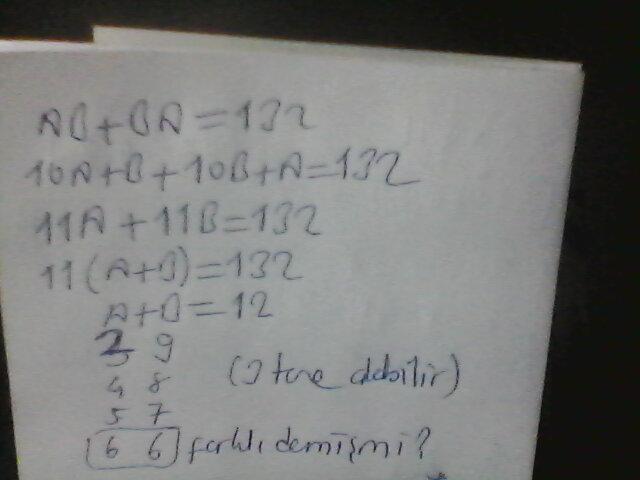 AB+BA=132
10A+B+10B+A=132
11A+11B=132
11(A+B)=132
A+B=12
3 9
4 8 
5 7
6 6 farklı demiş mi?